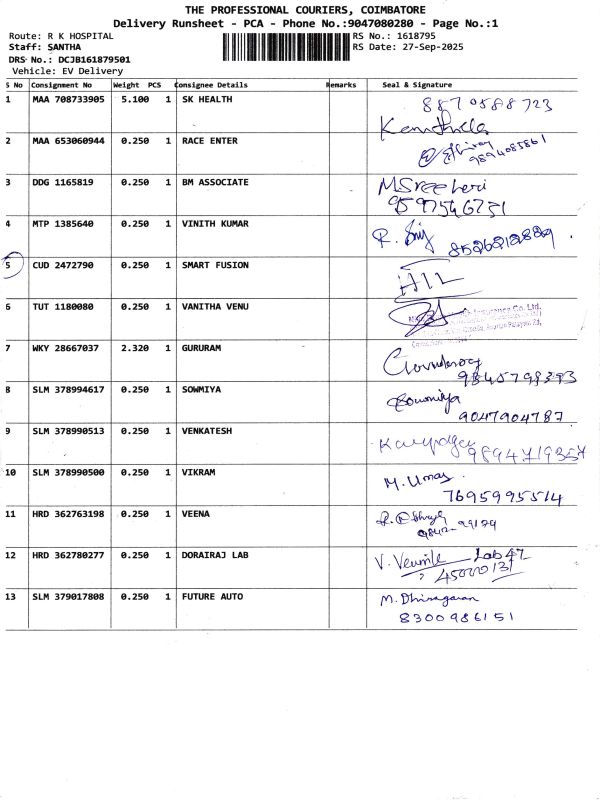 THE PROFESSIONAL COURIERS, COIMBATORE
Delivery Runsheet - PCA - Phone No.:9047080280 - Page No.:1
Route: R K HOSPITAL RS No.: 1618795
Staff: SANTHA RS Date: 27-Sep-2025
DRS No.: DCJB161879501
Vehicle: EV Delivery
S No Consignment No Weight PCS Consignee Details Remarks Seal & Signature
1 MAA 708733905 5.100 1 SK HEALTH 8870588723
2 MAA 653060944 0.250 1 RACE ENTER 9894085861
3 DDG 1165819 0.250 1 BM ASSOCIATE MSreeheri
9597546751
4 MTP 1385640 0.250 1 VINITH KUMAR R. 8526212889
5 CUD 2472790 0.250 1 SMART FUSION
6 TUT 1180080 0.250 1 VANITHA VENU Insurance Co. Ltd.
7 WKY 28667037 2.320 1 GURURAM
9845798393
8 SLM 378994617 0.250 1 SOWMIYA Sowmiya
9047904787
9 SLM 378990513 0.250 1 VENKATESH 9894719357
10 SLM 378990500 0.250 1 VIKRAM M. Umas
7695995514
11 HRD 362763198 0.250 1 VEENA
9842-99129
12 HRD 362780277 0.250 1 DORAIRAJ LAB V. Lab 47
45000131
13 SLM 379017808 0.250 1 FUTURE AUTO M. Dhinagaran
8300986151